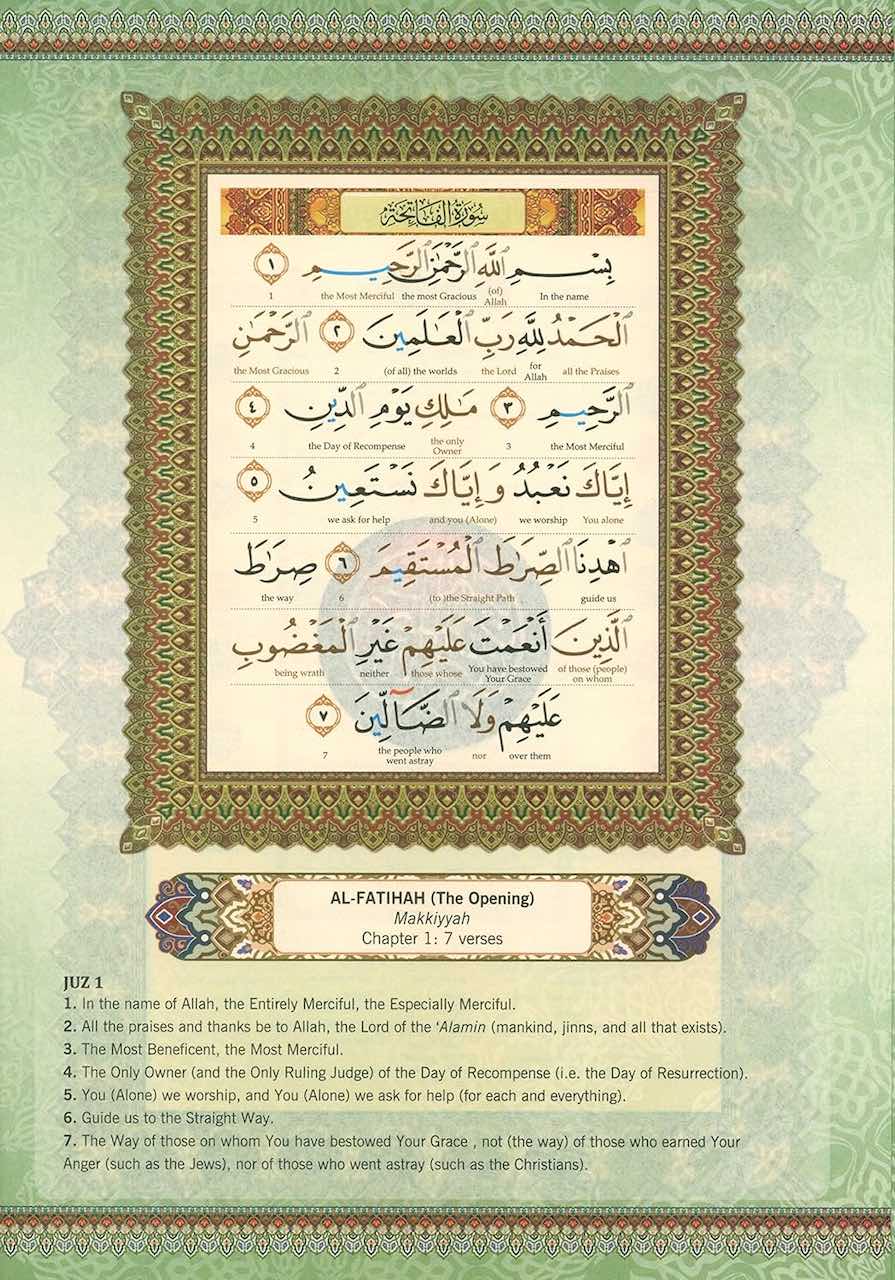 سُورَةُ الْفَاتِحَةِ
بِسْمِ ٱللَّهِ ٱلرَّحْمَٰنِ ٱلرَّحِيمِ ١
In the name (of) Allah the most Gracious the Most Merciful 1
ٱلْحَمْدُ لِلَّهِ رَبِّ ٱلْعَٰلَمِينَ ٢ ٱلرَّحْمَٰنِ
all the Praises for Allah the Lord (of all) the worlds 2 the Most Gracious
ٱلرَّحِيمِ ٣ مَٰلِكِ يَوْمِ ٱلدِّينِ ٤
the Most Merciful 3 the only Owner the Day of Recompense 4
إِيَّاكَ نَعْبُدُ وَإِيَّاكَ نَسْتَعِينُ ٥
You alone we worship and you (Alone) we ask for help 5
ٱهْدِنَا ٱلصِّرَٰطَ ٱلْمُسْتَقِيمَ ٦ صِرَٰطَ
guide us (to )the Straight Path 6 the way
ٱلَّذِينَ أَنْعَمْتَ عَلَيْهِمْ غَيْرِ ٱلْمَغْضُوبِ
of those (people) on whom You have bestowed Your Grace those whose neither being wrath
عَلَيْهِمْ وَلَا ٱلضَّآلِّينَ ٧
over them nor the people who went astray 7
AL-FATIHAH (The Opening)
Makkiyyah
Chapter 1: 7 verses
JUZ 1
1. In the name of Allah, the Entirely Merciful, the Especially Merciful.
2. All the praises and thanks be to Allah, the Lord of the ‘Alamin (mankind, jinns, and all that exists).
3. The Most Beneficent, the Most Merciful.
4. The Only Owner (and the Only Ruling Judge) of the Day of Recompense (i.e. the Day of Resurrection).
5. You (Alone) we worship, and You (Alone) we ask for help (for each and everything).
6. Guide us to the Straight Way.
7. The Way of those on whom You have bestowed Your Grace , not (the way) of those who earned Your
Anger (such as the Jews), nor of those who went astray (such as the Christians).